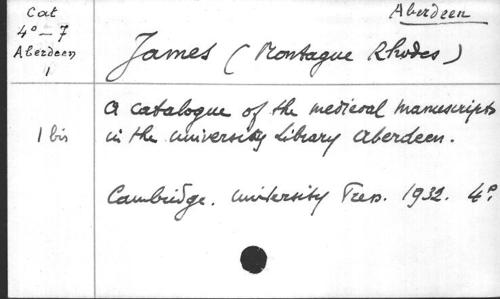 Cat
4° — 7
Aberdeen
1
Aberdeen
James (Montague Rhodes)
A catalogue of the medieval manuscripts
1 bis
in the University Library Aberdeen.
Cambridge. University Press. 1932. 4°.